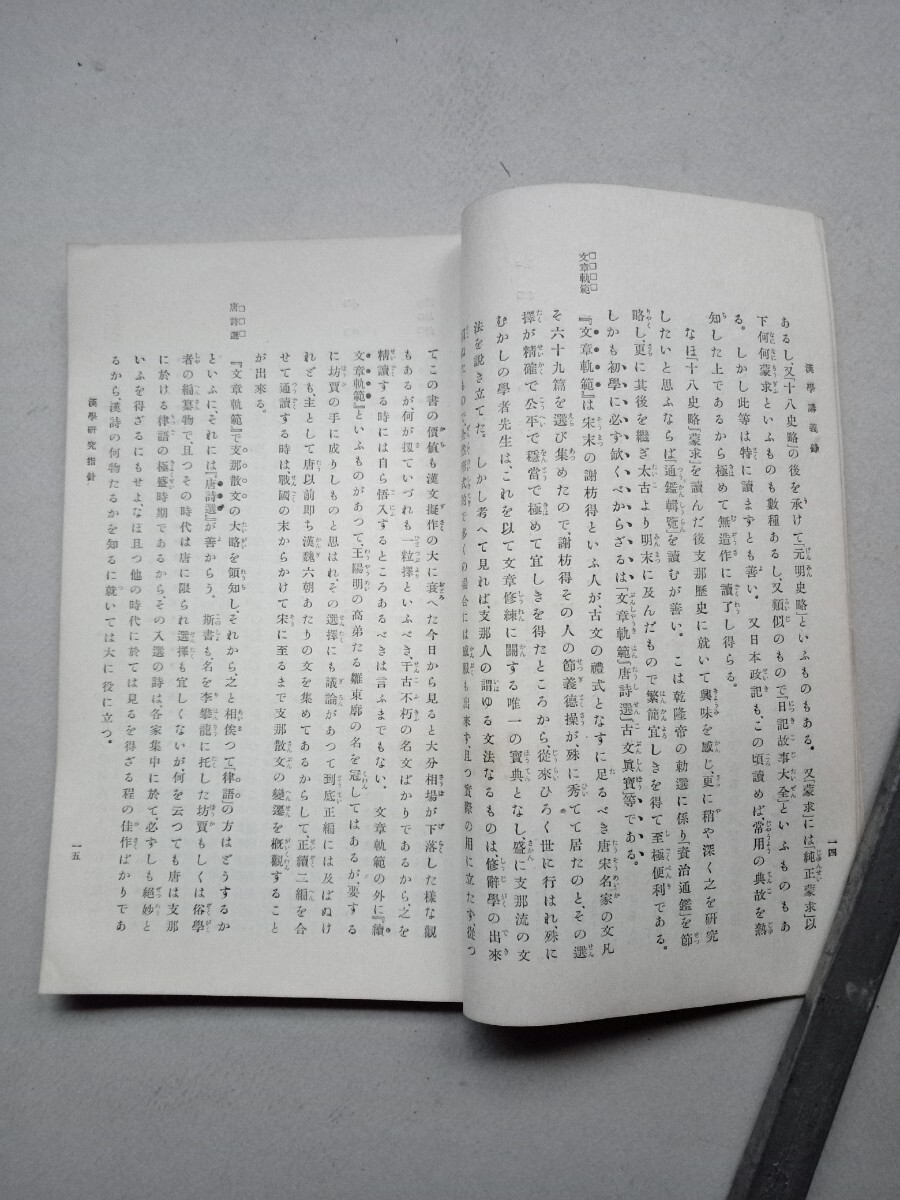 漢學講義錄
一四
あるし、又「十八史略」の後を承けて「元明史略」といふものもある。又「蒙求」には「純正蒙求」以
下何何蒙求といふものも數種あるし、又類似のもので「日記故事大全」といふものもあ
る。しかし此等は特に讀まずとも善い。又日本政記も、この頃讀めば、常用の典故を熟
知した上であるから極めて無造作に讀了し得らる。
なほ「十八史略」「蒙求」を讀んだ後支那歷史に就いて興味を感じ、更に稍や深く之を研究
したいと思ふならば「通鑑輯覽」を讀むが善い。こは乾隆帝の勅選に係り「資治通鑑」を節
略し、更に其後を繼ぎ太古より明末に及んだもので繁簡宜しきを得て至極便利である。
しかも初學に必ず缺くべからざるは、「文章軌範」「唐詩選」「古文眞寶」等である。
文章軌範
『文章軌範』は宋末の謝枋得といふ人が、古文の禮式となすに足るべき唐宋名家の文凡
そ六十九篇を選び集めたので、謝枋得その人の節義德操が、殊に秀てて居たのと、その選
擇が精確で公平で穩當で極めて宜しきを得たところから、從來ひろく世に行はれ、殊に
むかしの學者先生は、これを以て文章修練に關する唯一の寶典となし盛さんに支那流の文
法を說き立てた。しかし考へて見れば、支那人の謂ゆる文法なるものは修辭學の出來
で多くの場合には
も出來ず、且つ實際の用に立たず從つ
てこの書の價値も漢文擬作の大に衰へた今日から見ると大分相場が下落した樣な觀
もあるが、何が扨ていづれも一粒擇といふべき、千古不朽の名文ばかりであるから、之を
精讀する時には自ら悟入するところあるべきは言ふまでもない。文章軌範の外に『續
文章軌範』といふものがあつて、王陽明の高弟たる鄒東廓の名を冠してはあるが要する
に坊賈の手に成りしものと思はれ、その選擇にも議論があつて到底正編には及ばぬけ
れども、主として唐以前即ち漢魏六朝あたりの文を集めてあるからして、正續二編を合
せて通讀する時は、戰國の末からかけて宋に至るまで支那散文の變遷を槪觀すること
が出來る。
唐詩選
『文章軌範』で支那散文の大略を領知し、それから之と相俟つて「律語」の方はどうするか
といふに、それには『唐詩選』が善からう。斯書も、名を李攀龍に托した坊賈もしくは俗學
者の編纂物で、且つその時代は唐に限られ選擇も宜しくないが何を云つても唐は支那
に於ける律語の極盛時期であるから、その入選の詩は、各家集中に於て、必ずしも絕妙と
いふを得ざるにもせよ、なほ且つ他の時代に於ては見るを得ざる程の佳作ばかりであ
るから、漢詩の何物たるかを知るに就いては大に役に立つ。
漢學硏究指針
一五